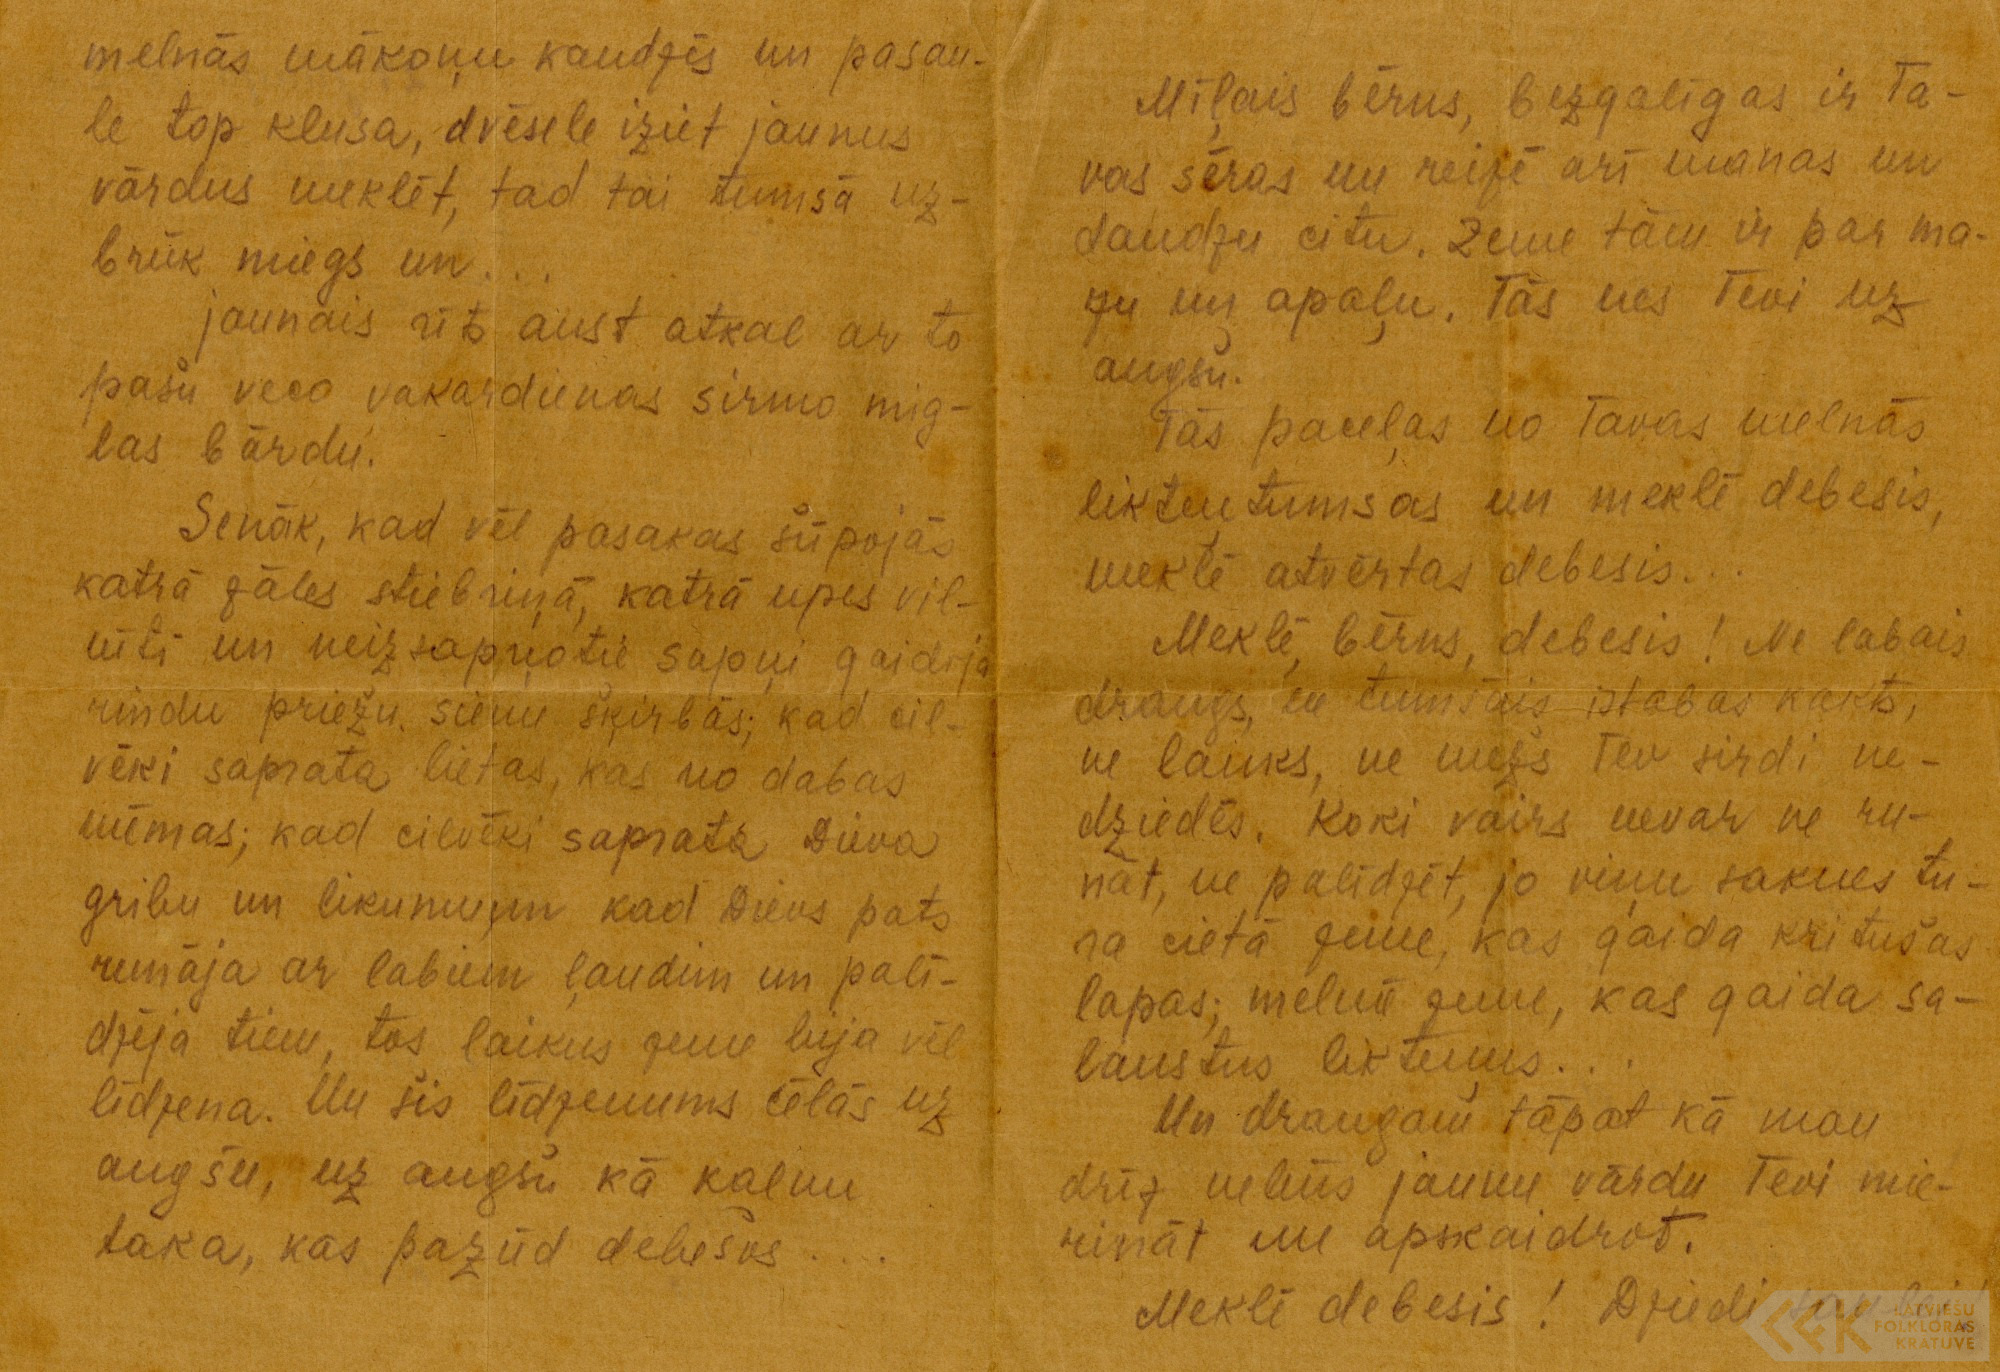 melnās mākoņu kaudzēs un pasau-
le top klusa, dvēsele iziet jaunus
vārdus meklēt, tad tai tumsā uz-
brūk miegs un...
jaunais rīts aust atkal ar to
pašu veco vakardienas sirmo mig-
las bārdu.
Senāk, kad vēl pasakas šūpojās
katrā zāles stiebriņā, katrā upes vil-
nītī un neizsapņotie sapņi gaidīja
rindu priežu sienu šķirbās; kad cil-
vēki saprata lietas, kas no dabas
mēmas; kad cilvēki saprata Dieva
gribu un likumu, un kad Dievs pats
runāja ar labiem ļaudīm un palī-
dzēja tiem, tos laikus zeme bija vēl
līdzena. Un šis līdzenums cēlās uz
augšu, uz augšu kā kalnu
taka, kas pazūd debešos....
Mīļais bērns, bezgalīgas ir Ta-
vas sēras un reizē arī manas un
daudzu citu. Zeme tām ir par ma-
zu un apaļu. Tās nes Tevi uz
augšu.
Tās paceļas no Tavas melnās
likteņtumsas un meklē debesis,
meklē atvērtas debesis...
Meklē, bērns, debesis! Ne labais
draugs, ne tumšais istabas kakts,
ne lauks, ne mežs Tev sirdi ne-
dziedēs. Koki vairs nevar ne ru-
nāt, ne palīdzēt, jo viņu saknes tu-
ra cietā zeme, kas gaida kritušas
lapas; melnā zeme, kas gaida sa-
laustus likteņus...
Un draugam tāpat kā man
drīz nebūs jaunu vārdu Tevi mie-
rināt un apskaidrot.
Meklē debesis! Dziedi
LATVIEŠU
FOLKLORAS
KRĀTUVE